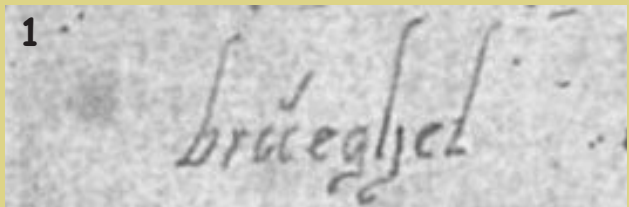 1
brŭeghel